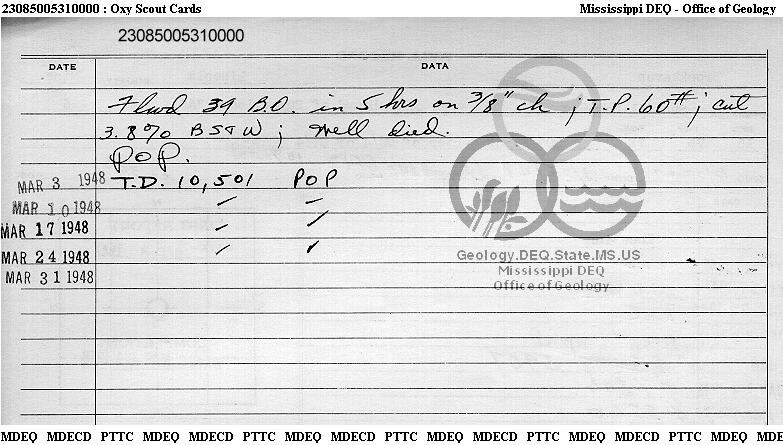 23085005310000 : Oxy Scout Cards Mississippi DEQ - Office of Geology
23085005310000
DATE DATA
Flwd 39 B.O. in 5 hrs on 3/8" ch ; T.P. 60# ; cut
3.8% BS&W ; well died.
POP.
MAR 3 1948 T.D. 10,501 POP
MAR 10 1948 〃 〃
MAR 17 1948 〃 〃
MAR 24 1948 〃 〃
MAR 31 1948
Geology.DEQ.State.MS.US
Mississippi DEQ
Office of Geology
MDEQ MDECD PTTC MDEQ MDECD PTTC MDEQ MDECD PTTC MDEQ MDECD PTTC MDEQ MDECD PTTC MDEQ MDE